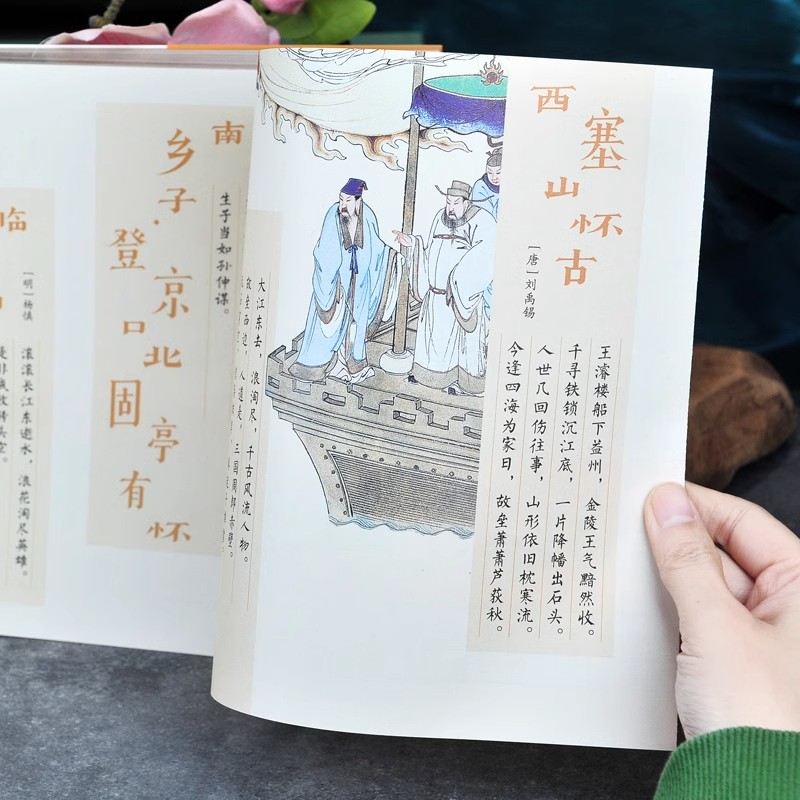 西塞山怀古
[唐]刘禹锡
王濬楼船下益州，金陵王气黯然收。
千寻铁锁沉江底，一片降幡出石头。
人世几回伤往事，山形依旧枕寒流。
今逢四海为家日，故垒萧萧芦荻秋。
大江东去，浪淘尽，千古风流人物。
故垒西边，人道是，三国周郎赤壁。
南乡子·登京口北固亭有怀
生子当如孙仲谋。
临
[明]杨慎
滚滚长江东逝水，浪花淘尽英雄。
是非成败转头空。